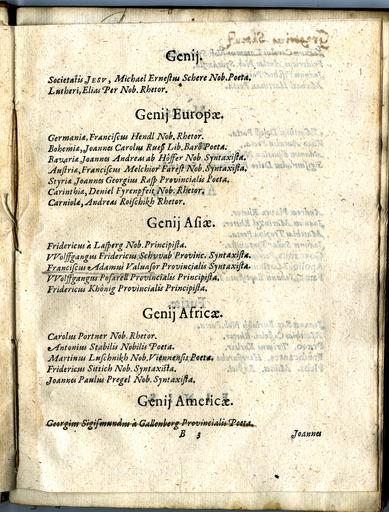 Genij.
Societatis JESV, Michael Ernestus Schere Nob. Poeta.
Lutheri, Elias Per Nob. Rhetor.
Genij Europæ.
Germaniæ, Franciscus Hendl Nob. Rhetor.
Bohemiæ, Joannes Carolus Ruess Lib. Baro Poeta.
Bavariæ, Joannes Andreas ab Höffer Nob. Syntaxista.
Austriæ, Franciscus Melchior Farest Nob. Syntaxista.
Styriæ Joannes Georgius Rasp Provincialis Poeta.
Carinthiæ, Deniel Fyrenpfeit Nob. Rhetor.
Carniolæ, Andreas Roischikh Rhetor.
Genij Asiæ.
Fridericus à Lasperg Nob. Principista.
VVolffgangus Fridericus Schvvab Provinc. Syntaxista.
Franciscus Adamus Valuasor Provincialis Syntaxista.
VVolffgangus Posarell Provincialis Principista.
Fridericus Khönig Provincialis Principista.
Genij Africæ.
Carolus Portner Nob. Rhetor.
Antonius Stabilis Nobilis Poeta.
Martinus Luschnikh Nob. Viennensis Poeta.
Fridericus Sittich Nob. Syntaxista.
Joannes Paulus Pregel Nob. Syntaxista.
Genij Americæ.
Georgius Sigismundus à Gallenberg Provincialis Poeta.
B 3 Joannes